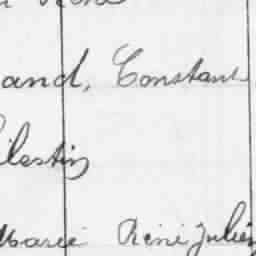 René
and, Constant
ilestin
Marie René Julien